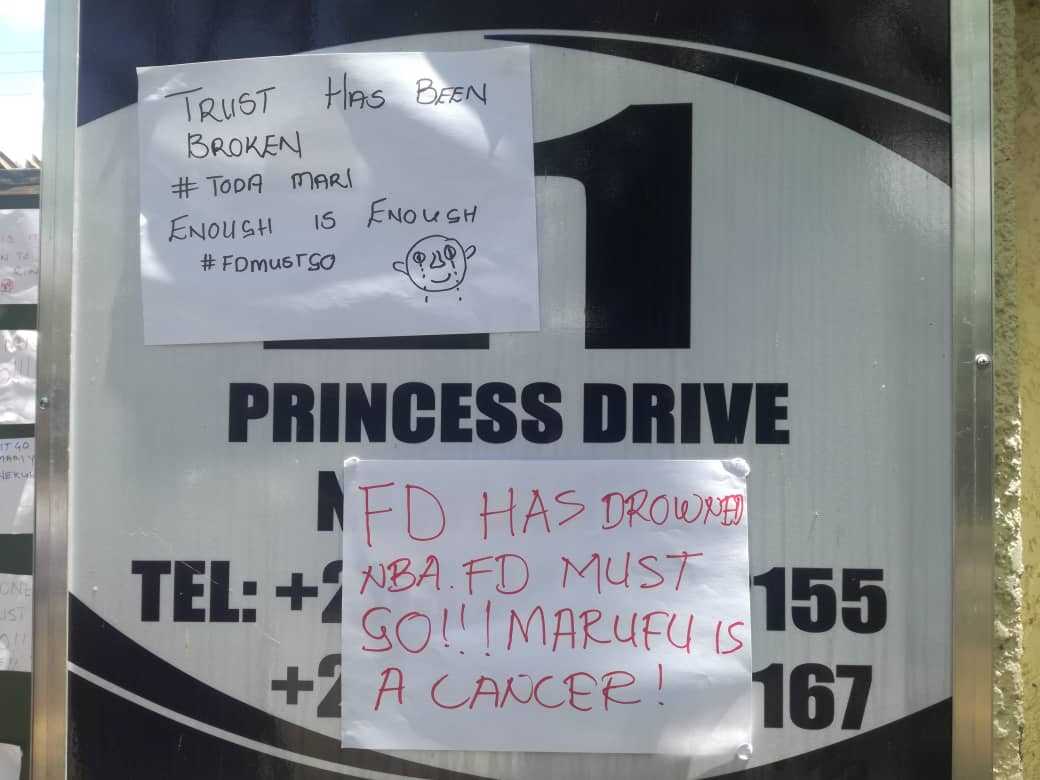 TRUST HAS BEEN
BROKEN
# TODA MARI
ENOUGH IS ENOUGH
#FDMUSTGO
1
PRINCESS DRIVE
N
FD HAS DROWNED
NBA. FD MUST
GO!!! MARUFU IS
A CANCER!
TEL: +2 155
+2 167